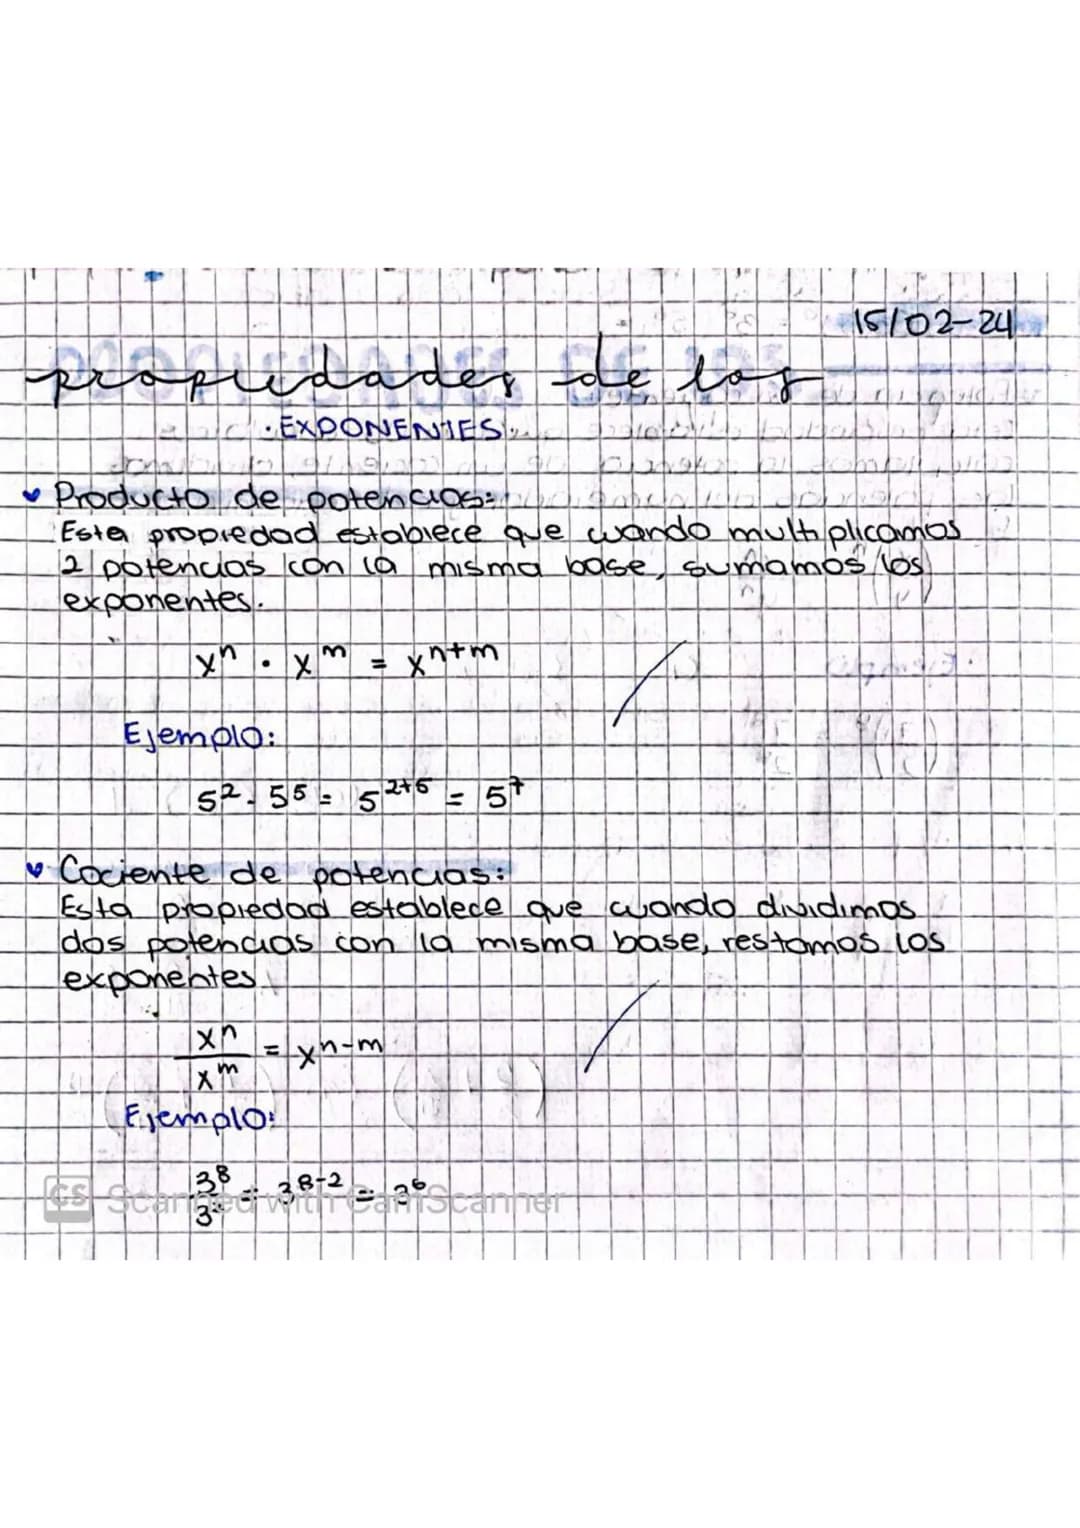 15/02-24
propiedades de los
·EXPONENTES·
Producto de potencias:
Esta propiedad establece que cuando multiplicamos
2 potencias con la misma base, sumamos los
exponentes.
xⁿ · xᵐ = xⁿ⁺ᵐ
Ejemplo:
5² · 5⁵ = 5²⁺⁵ = 5⁷
Cociente de potencias:
Esta propiedad establece que cuando dividimos
dos potencias con la misma base, restamos los
exponentes.
xⁿ/xᵐ = xⁿ⁻ᵐ
Ejemplo:
3⁸/3² = 3⁸⁻² = 3⁶
CS Scanned with CamScanner